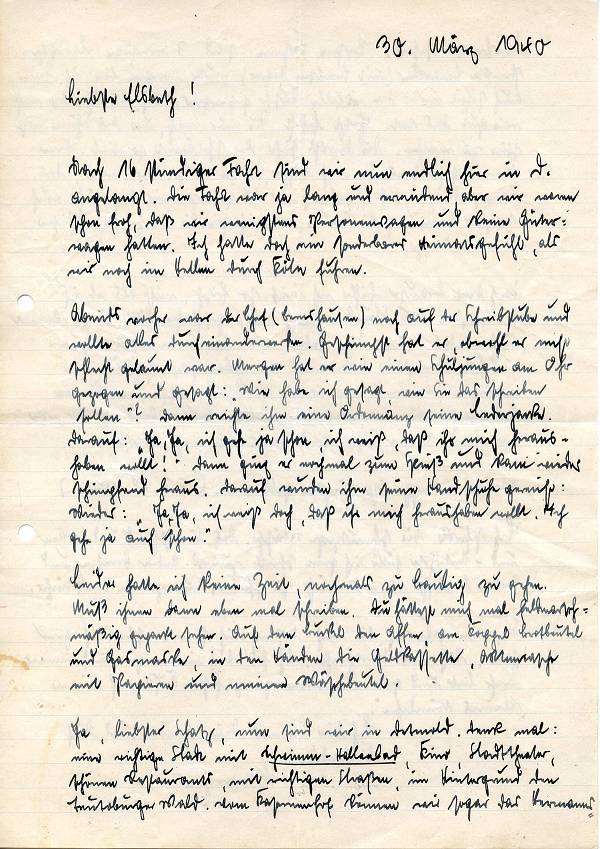 30. März 1940
Liebste Elsbeth!
Nach 16 stündiger Fahrt sind wir nun endlich hier in D.
angelangt. Die Fahrt war ja lang und ermüdend, aber wir waren
schon froh, daß wir wenigstens Personenwagen und keine Güter-
wagen hatten. Ich hatte doch ein sonderbares Heimatsgefühl, als
wir noch im Hellen durch Köln fuhren.
Abends vorher war der Chef ( ) noch auf der Schreibstube und
wollte alles durcheinanderwerfen. Geschimpft hat er, obwohl er nicht
schlecht gelaunt war. Mergen hat er wie einen Schuljungen am Ohr
gezogen und gesagt: „Wie habe ich gesagt, wie Sie das schreiben
sollen"? Dann reichte ihm eine Ordonnanz seine Lederjacke.
Darauf: „Ja, Ja, ich gehe ja schon, ich weiß, daß ihr mich heraus-
haben wollt!" Dann ging er nochmal zum Spieß und kam wieder
schimpfend heraus. Darauf wurden ihm seine Handschuhe gereicht:
Wieder: „Ja, Ja, ich weiß doch, daß ihr mich heraushaben wollt. Ich
gehe ja auch schon."
Leider hatte ich keine Zeit, nochmals zu zu gehen.
Muß ihnen dann eben mal schreiben. Du hättest mich mal feldmarsch-
mäßig gepackt sehen. Auf dem Buckel den Affen, am Koppel Brotbeutel
und Gasmaske, in den Händen die Geldkassette, Aktentasche
mit Papieren und meinen Wäschebeutel.
Ja, liebster Schatz, nun sind wir in Detmold. Denk mal:
eine richtige Stadt mit Schwimm-Hallenbad, Kino, Stadttheater,
schönen Restaurants, mit richtigen Straßen, im Hintergrund den
Teutoburger Wald. Vom Kasernenhof können wir sogar das Hermanns-